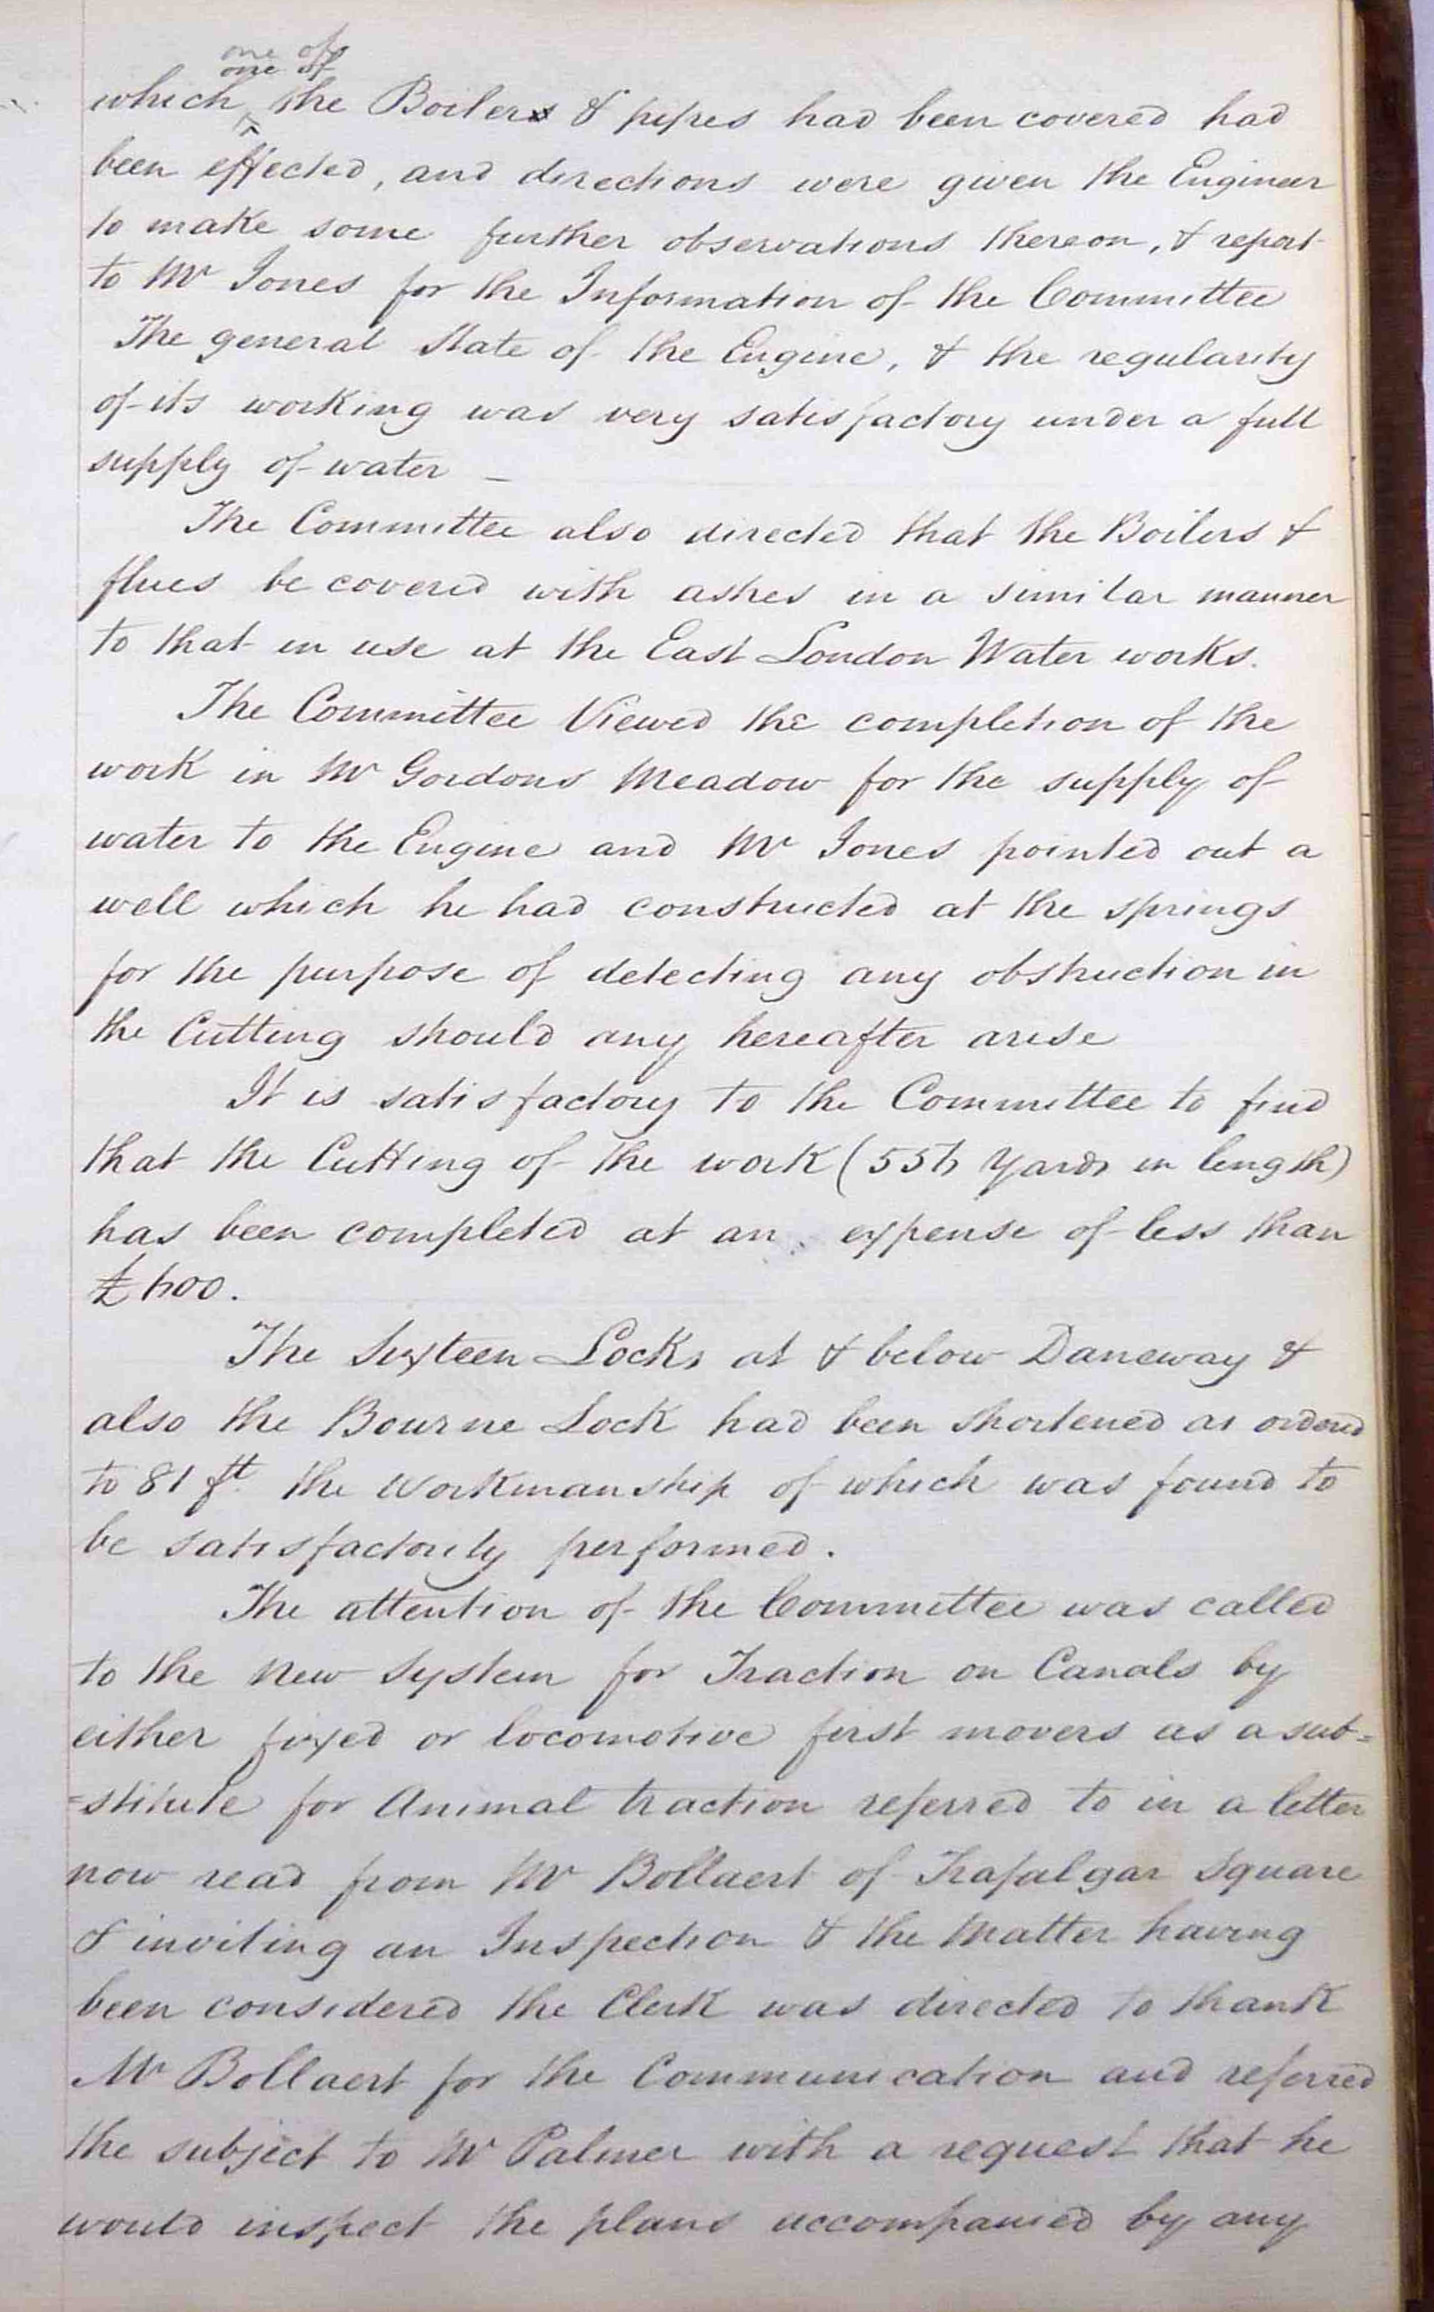 one of
one of
which the Boilers & pipes had been covered had
been effected, and directions were given the Engineer
to make some further observations thereon, & report
to Mr Jones for the Information of the Committee
The general State of the Engine, & the regularity
of its working was very satisfactory under a full
supply of water –
The Committee also directed that the Boilers &
flues be covered with ashes in a similar manner
to that in use at the East London Water works.
The Committee Viewed the completion of the
work in Mr Gordons Meadow for the supply of
water to the Engine and Mr Jones pointed out a
well which he had constructed at the springs
for the purpose of detecting any obstruction in
the Cutting should any hereafter arise
It is satisfactory to the Committee to find
that the Cutting of the work (556 Yards in length)
has been completed at an expense of less than
£600.
The Sixteen Locks at & below Daneway &
also the Bourne Lock had been shortened as ordered
to 81 ft. the Workmanship of which was found to
be satisfactorily performed.
The attention of the Committee was called
to the New System for Traction on Canals by
either fixed or locomotive first movers as a sub=
=stitute for Animal traction referred to in a letter
now read from Mr Bollaert of Trafalgar Square
& inviting an Inspection & the Matter having
been considered the Clerk was directed to thank
Mr Bollaert for the Communication and referred
the subject to Mr Palmer with a request that he
would inspect the plans accompanied by any